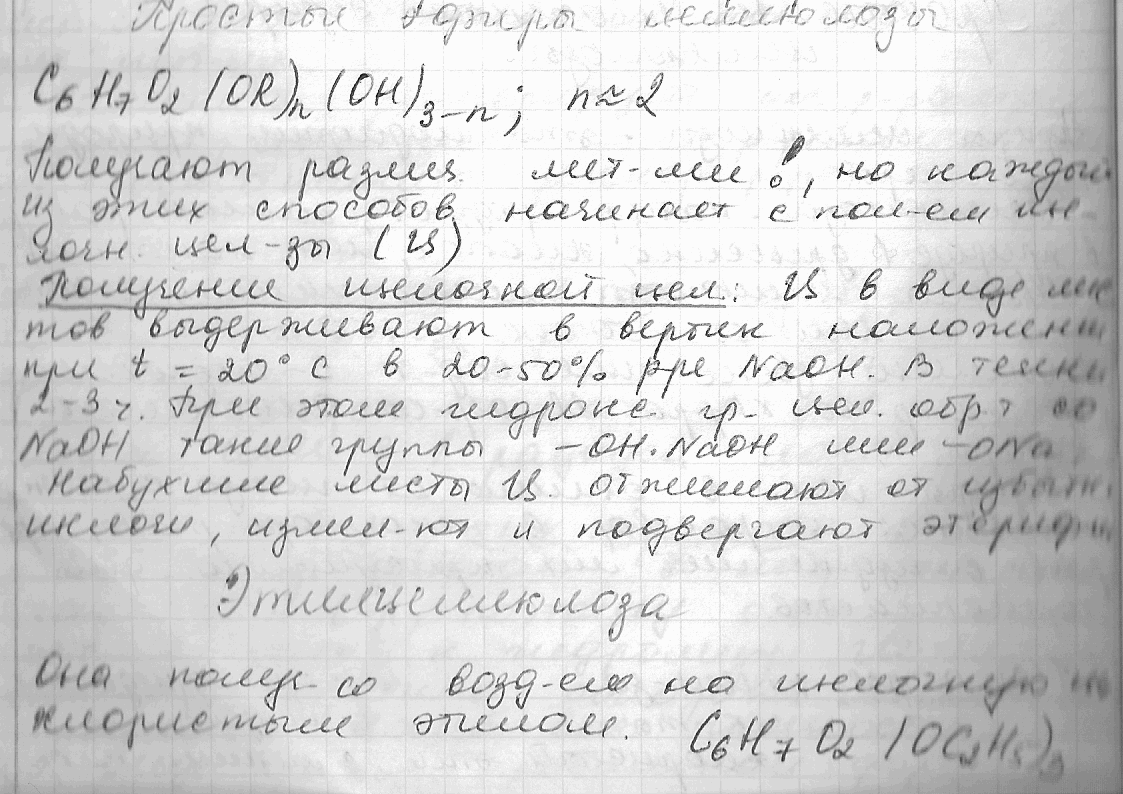 Простые эфиры целлюлозы
C₆H₇O₂(OR)ₙ(OH)₃₋ₙ; n≈2
Получают различ. мет-ми !, но каждый
из этих способов начинает с пол-ем ще-
лочн. цел-зы (Ц)
Получение щелочной цел: Ц в виде лис
тов выдерживают в вертик положени
при t = 20°С в 20-50% р-ре NaOH. В течен
2-3 ч. При этом гидрокс. гр. цел. обр.т со
NaOH такие группы –OH·NaOH или –ONa.
Набухшие листы Ц. отжимают от избытк.
щелочи, измел-ют и подвергают этериф
Этилцеллюлоза
Она получ-ся возд-ем на щелочную
хлористым этилом. C₆H₇O₂(OC₂H₅)₃